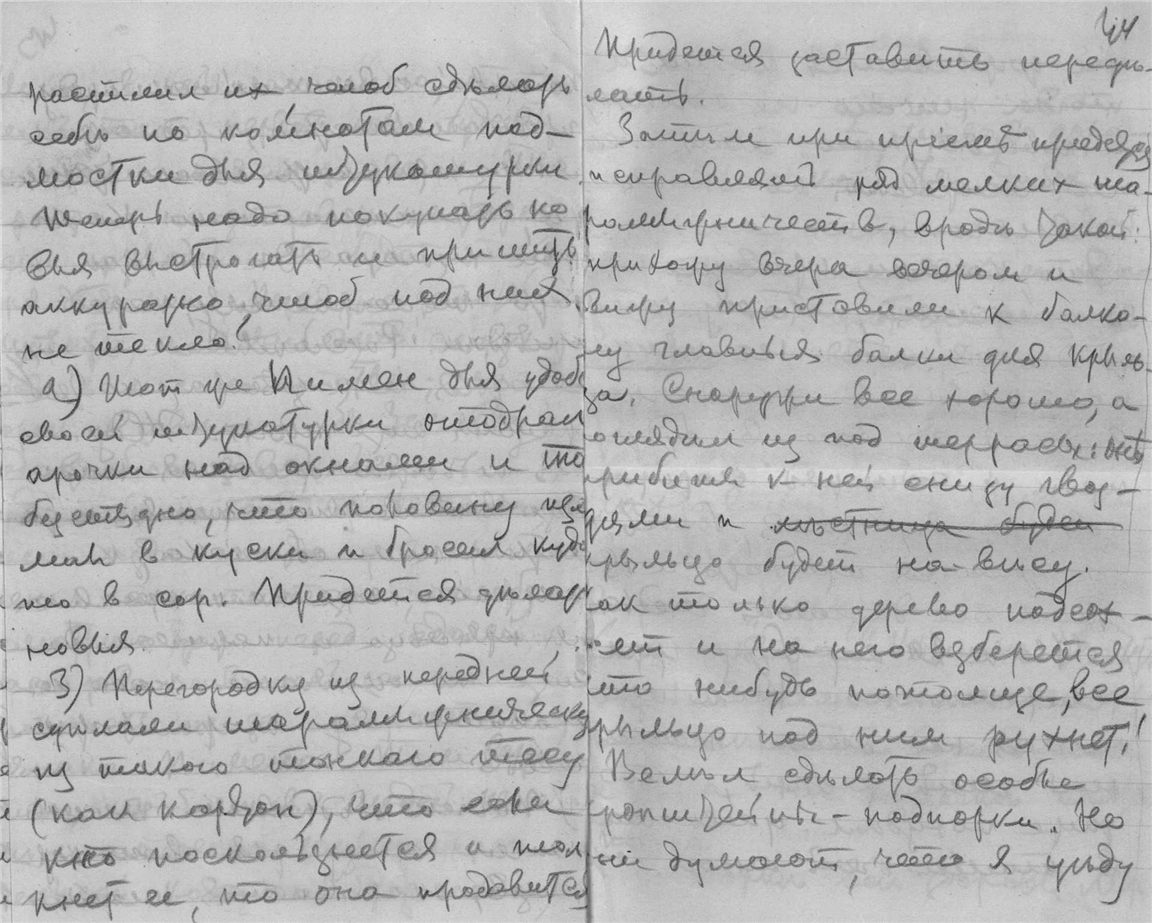 распилил их чтоб сдѣлать
себѣ по комнатам под-
мостки для штукатурки.
Теперь надо покупать но
выя выстрогать и пришить
аккуратно, чтоб под них
не текло!
а) Тот же Пимен для удобс
своей штукатурки отодрал
арочки над окнами и то
бы ладно, что половину
мал в куски и бросал куда
то в сор. Придется делать
новыя.
3) Перегородку из передней
сделали шаромыжническу
из такого тонкаго тесу
(как картон), что если
кто поскользнется и тол
кнет ее, то она продавится
44
Придется заставить передѣ-
лать.
Затѣм при пріемѣ придется
исправлять ряд мелких ша-
ромыжничеств, вродѣ такой:
прихожу вчера вечером и
вижу приставили к балко-
ну главныя балки для крыль
ца. Снаружи все хорошо, а
оглядѣл из под террасы:
прибиты к ней снизу гвоз-
дями и лѣстница будет
крыльцо будет на вису.
ак только дерево подсох-
нет и на него взберется
кто нибудь потолще, все
крыльцо под ним рухнет!
Велѣл сдѣлать особые
- подпорки. Но
ни думают, что я уѣду